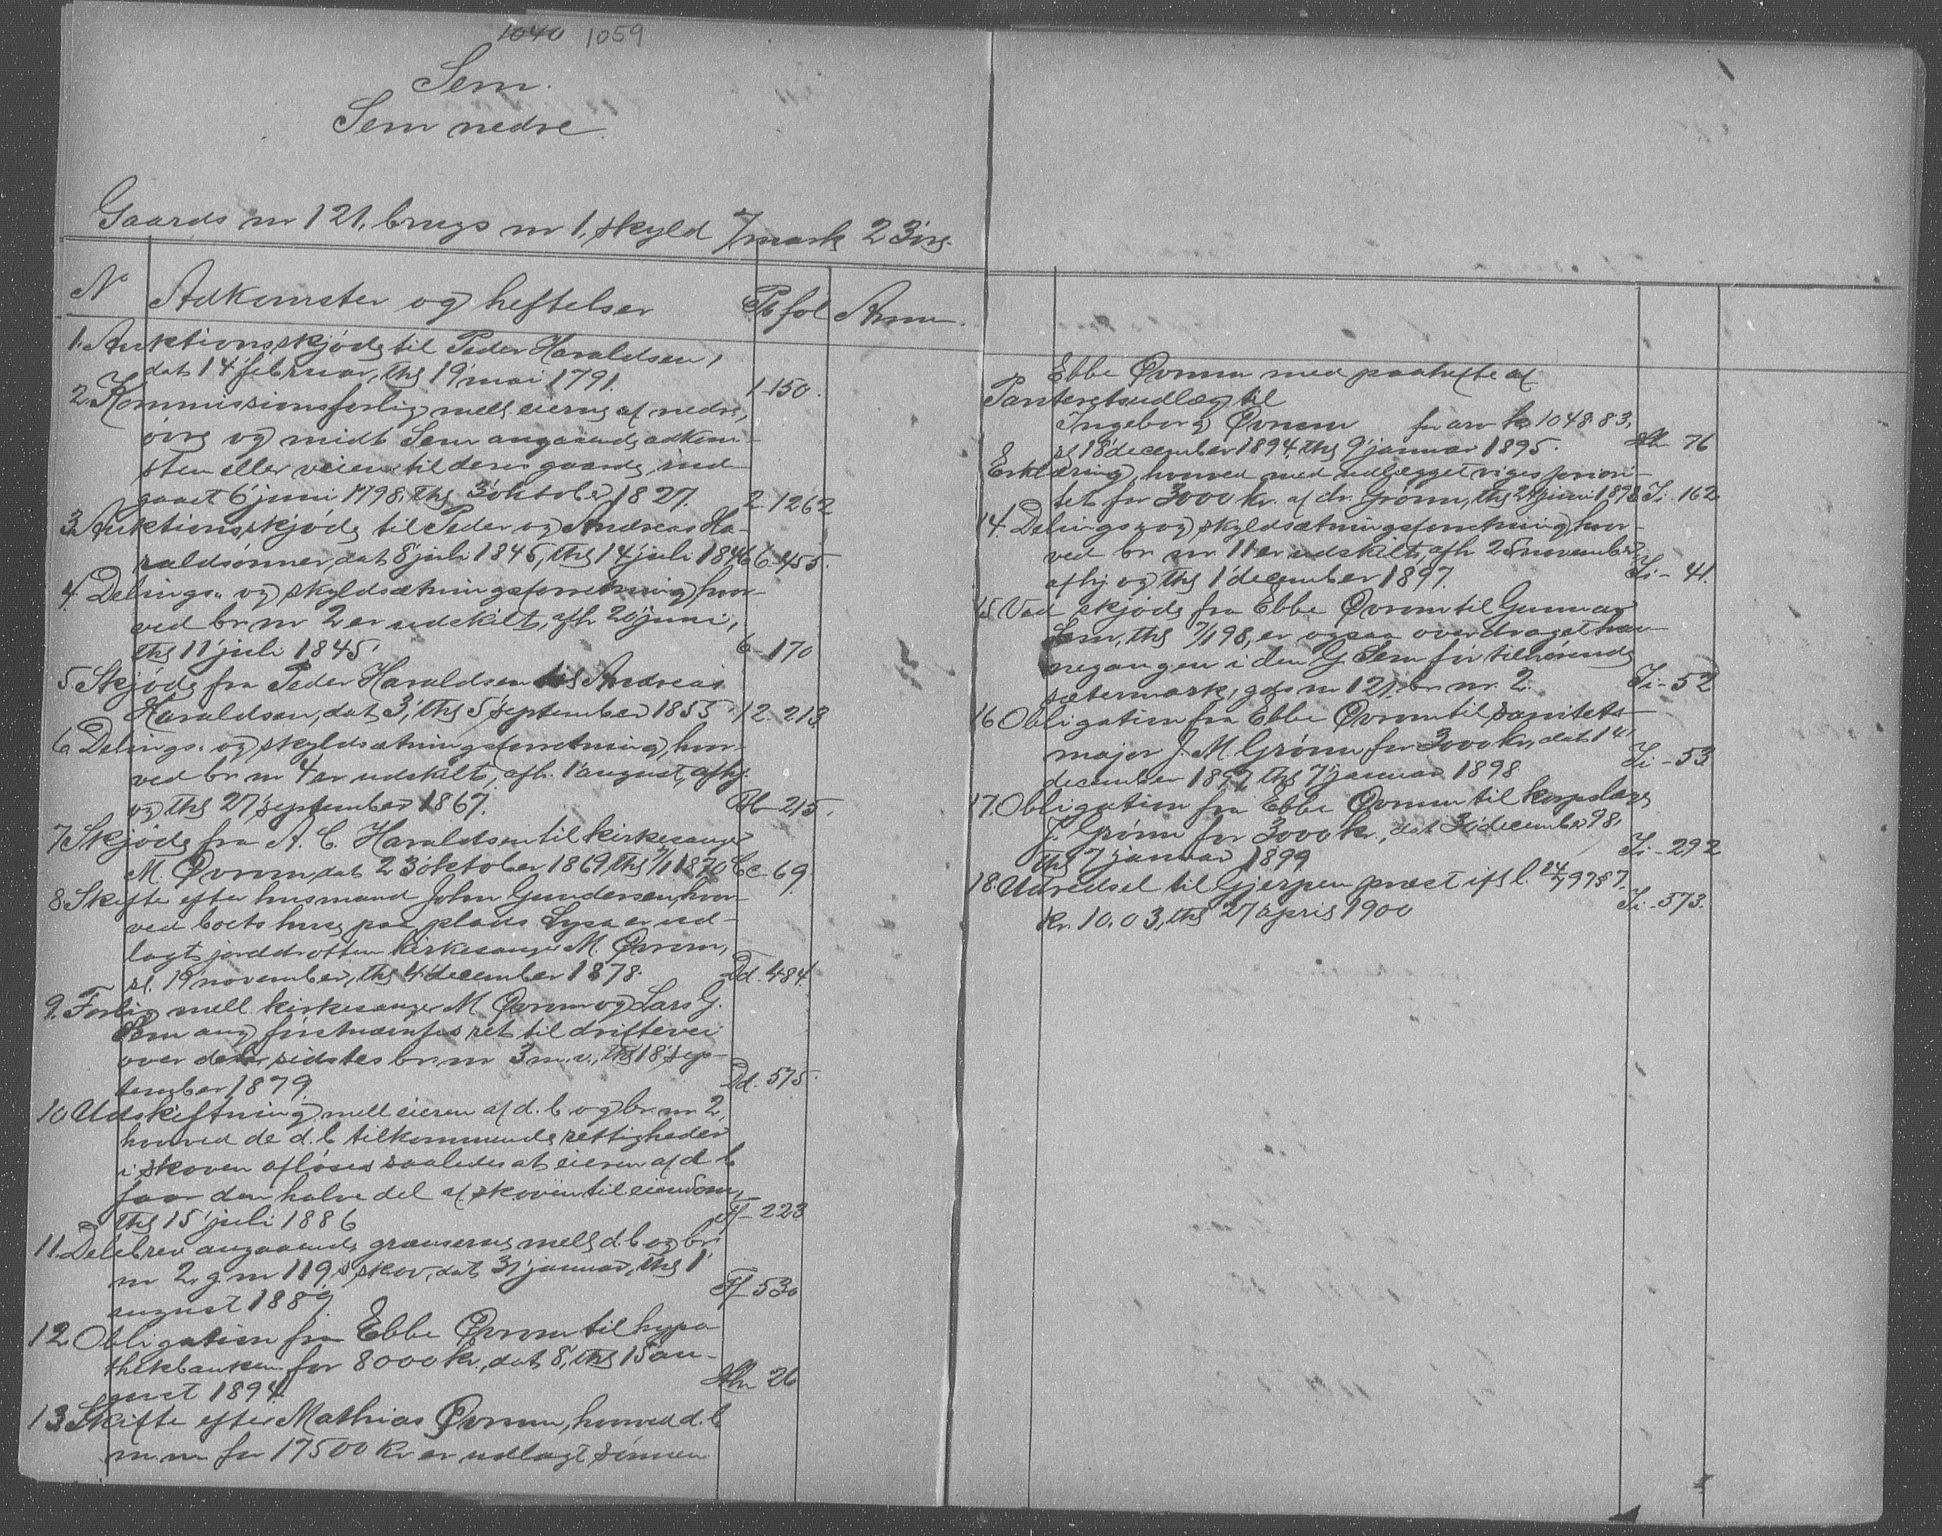 1040 1059
Sem.
Sem nedre.
Gaards nr 121, brugs nr 1, skyld 7 mark 23 øre.
No Adkomster og heftelser Pb fol Anm.
1. Auktionsskjøde til Peder Haraldsen,
dat 14 februar, thl 19 mai 1791. 1-150.
2. Kommissionsforlig mell eierne af nedre,
øvre og midt Sem angaaende adkom-
sten eller veiene til deres gaarde ind-
gaaet 6 juni 1798, thl 3 oktober 1827. 2-1262
3. Auktionsskjøde til Peder og Andreas Ha-
raldsønner, dat 8 juli 1845, thl 14 juli 1846 6-455.
4. Delings- og skyldsætningsforretning hvor-
ved br nr 2 er udskilt, afh 20 juni,
thl 11 juli 1845. 6-170
5 Skjøde fra Peder Haraldsen til Andreas
Haraldsen, dat 3, thl 5 september 1855. 12-213
6 Delings- og skyldsætningsforretning hvor-
ved br nr 4 er udskilt, afh. 1 august, afhj
og thl 27 september 1867. Bb-215.
7 Skjøde fra A. C. Haraldsen til kirkesanger
M. Øvrum dat 23 oktober 1869 thl 7/1 1870 Cc-69
8 Skifte efter husmand John Gundersen, hvor-
ved boets huse paa plads Lysa er ud-
lagt jorddrotten kirkesanger M. Øvrum,
sl. 19 november, thl 4 december 1878. Dd-484.
9. Forlig mell kirkesanger M Øvrum og Lars G.
Sem ang førstnævntes ret til driftevei
over den sidstes br. nr 3 m. v., thl 18 sep-
tember 1879. Dd-575.
10 Udskiftning mell eieren af d. b og br. nr 2,
hvorved de d. b tilkommende rettigheder
i skoven afløses saaledes at eieren af d. b
faar den halve del af skoven til eiendom,
thl 15 juli 1886 Ff-223
11. Delebrev angaaende grænserne mell d. b og br
nr 2, g. nr 119's skov, dat 31 januar, thl 1
august 1889. Ff-530
12 Obligation fra Ebbe Øvrum til hypo
thekbanken for 8000 kr, dat 8, thl 15 au-
gust 1894. Hh-26
13. Skifte efter Mathias Øvrum, hvorved d. b
m. m for 17500 kr er udlagt sønnen
Ebbe Øvrum med paahefte af
Panteretsudlæg til
Ingeborg Øvrum for arv kr 1048.83,
sl 18 december 1894, thl 9 januar 1895. Hh 76
Erklæring, hvorved med udlægget viges priori-
tet for 3000 kr. af dr. Grønn, thl juni 1898 Ii-162
14. Delings- og skyldsætningsforretning hvor-
ved br nr 11 er udskilt, afh 25 november
afhj og thl 1 december 1897. Ii-41.
15 Ved skjøde fra Ebbe Øvrum til Gunnar
Sem, thl 7/1 98, er ogsaa overdraget hav-
negangen i den G. Sem før tilhørende
sætermark, gds nr 121, br nr. 2. Ii-52
16 Obligation fra Ebbe Øvrum til sanitets-
major J. M. Grønn for 3000 kr, dat 14
december 1897 thl 7 januar 1898 Ii-53
17. Obligation fra Ebbe Øvrum til korpslæge
J. Grønn for 3000 kr., dat 30 december 98,
thl 7 januar 1899 Ii-292
18. Udredsel til Gjerpen præst ifl l. 24/7 9 787.
Kr. 10.03, thl 27 april 1900 Ii-573.